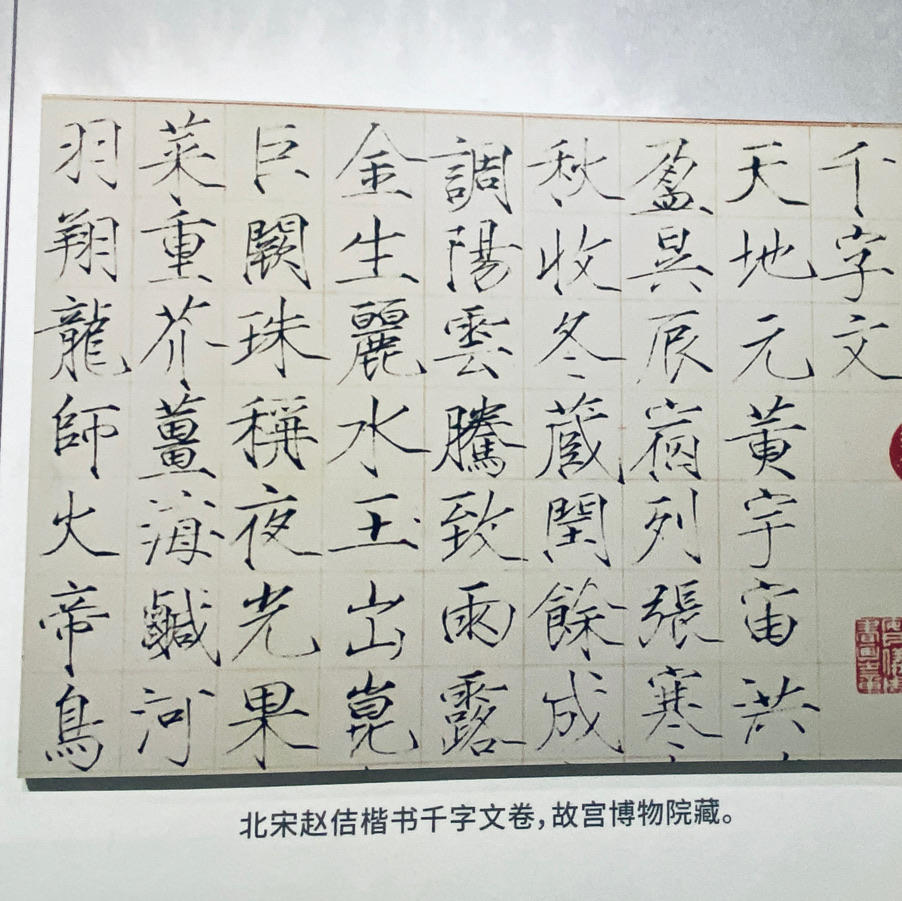 千字文
天地元黃宇宙洪
盈昃辰宿列張寒
秋收冬蔵閏餘成
調陽雲騰致雨露
金生麗水玉山崑
巨闕珠稱夜光果
菜重芥薑海鹹河
羽翔龍師火帝鳥
北宋赵佶楷书千字文卷,故宫博物院藏。